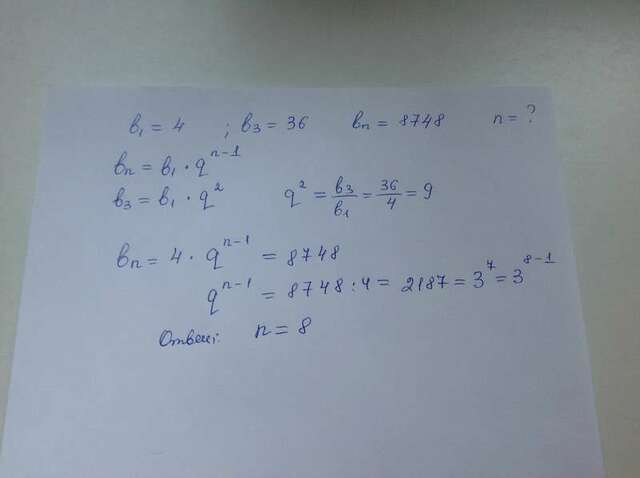 b₁ = 4 ; b₃ = 36 bₙ = 8748 n = ?
bₙ = b₁ · qⁿ⁻¹
b₃ = b₁ · q² q² = b₃/b₁ = 36/4 = 9
bₙ = 4 · qⁿ⁻¹ = 8748
qⁿ⁻¹ = 8748 : 4 = 2187 = 3⁷ = 3⁸⁻¹
Ответ: n = 8